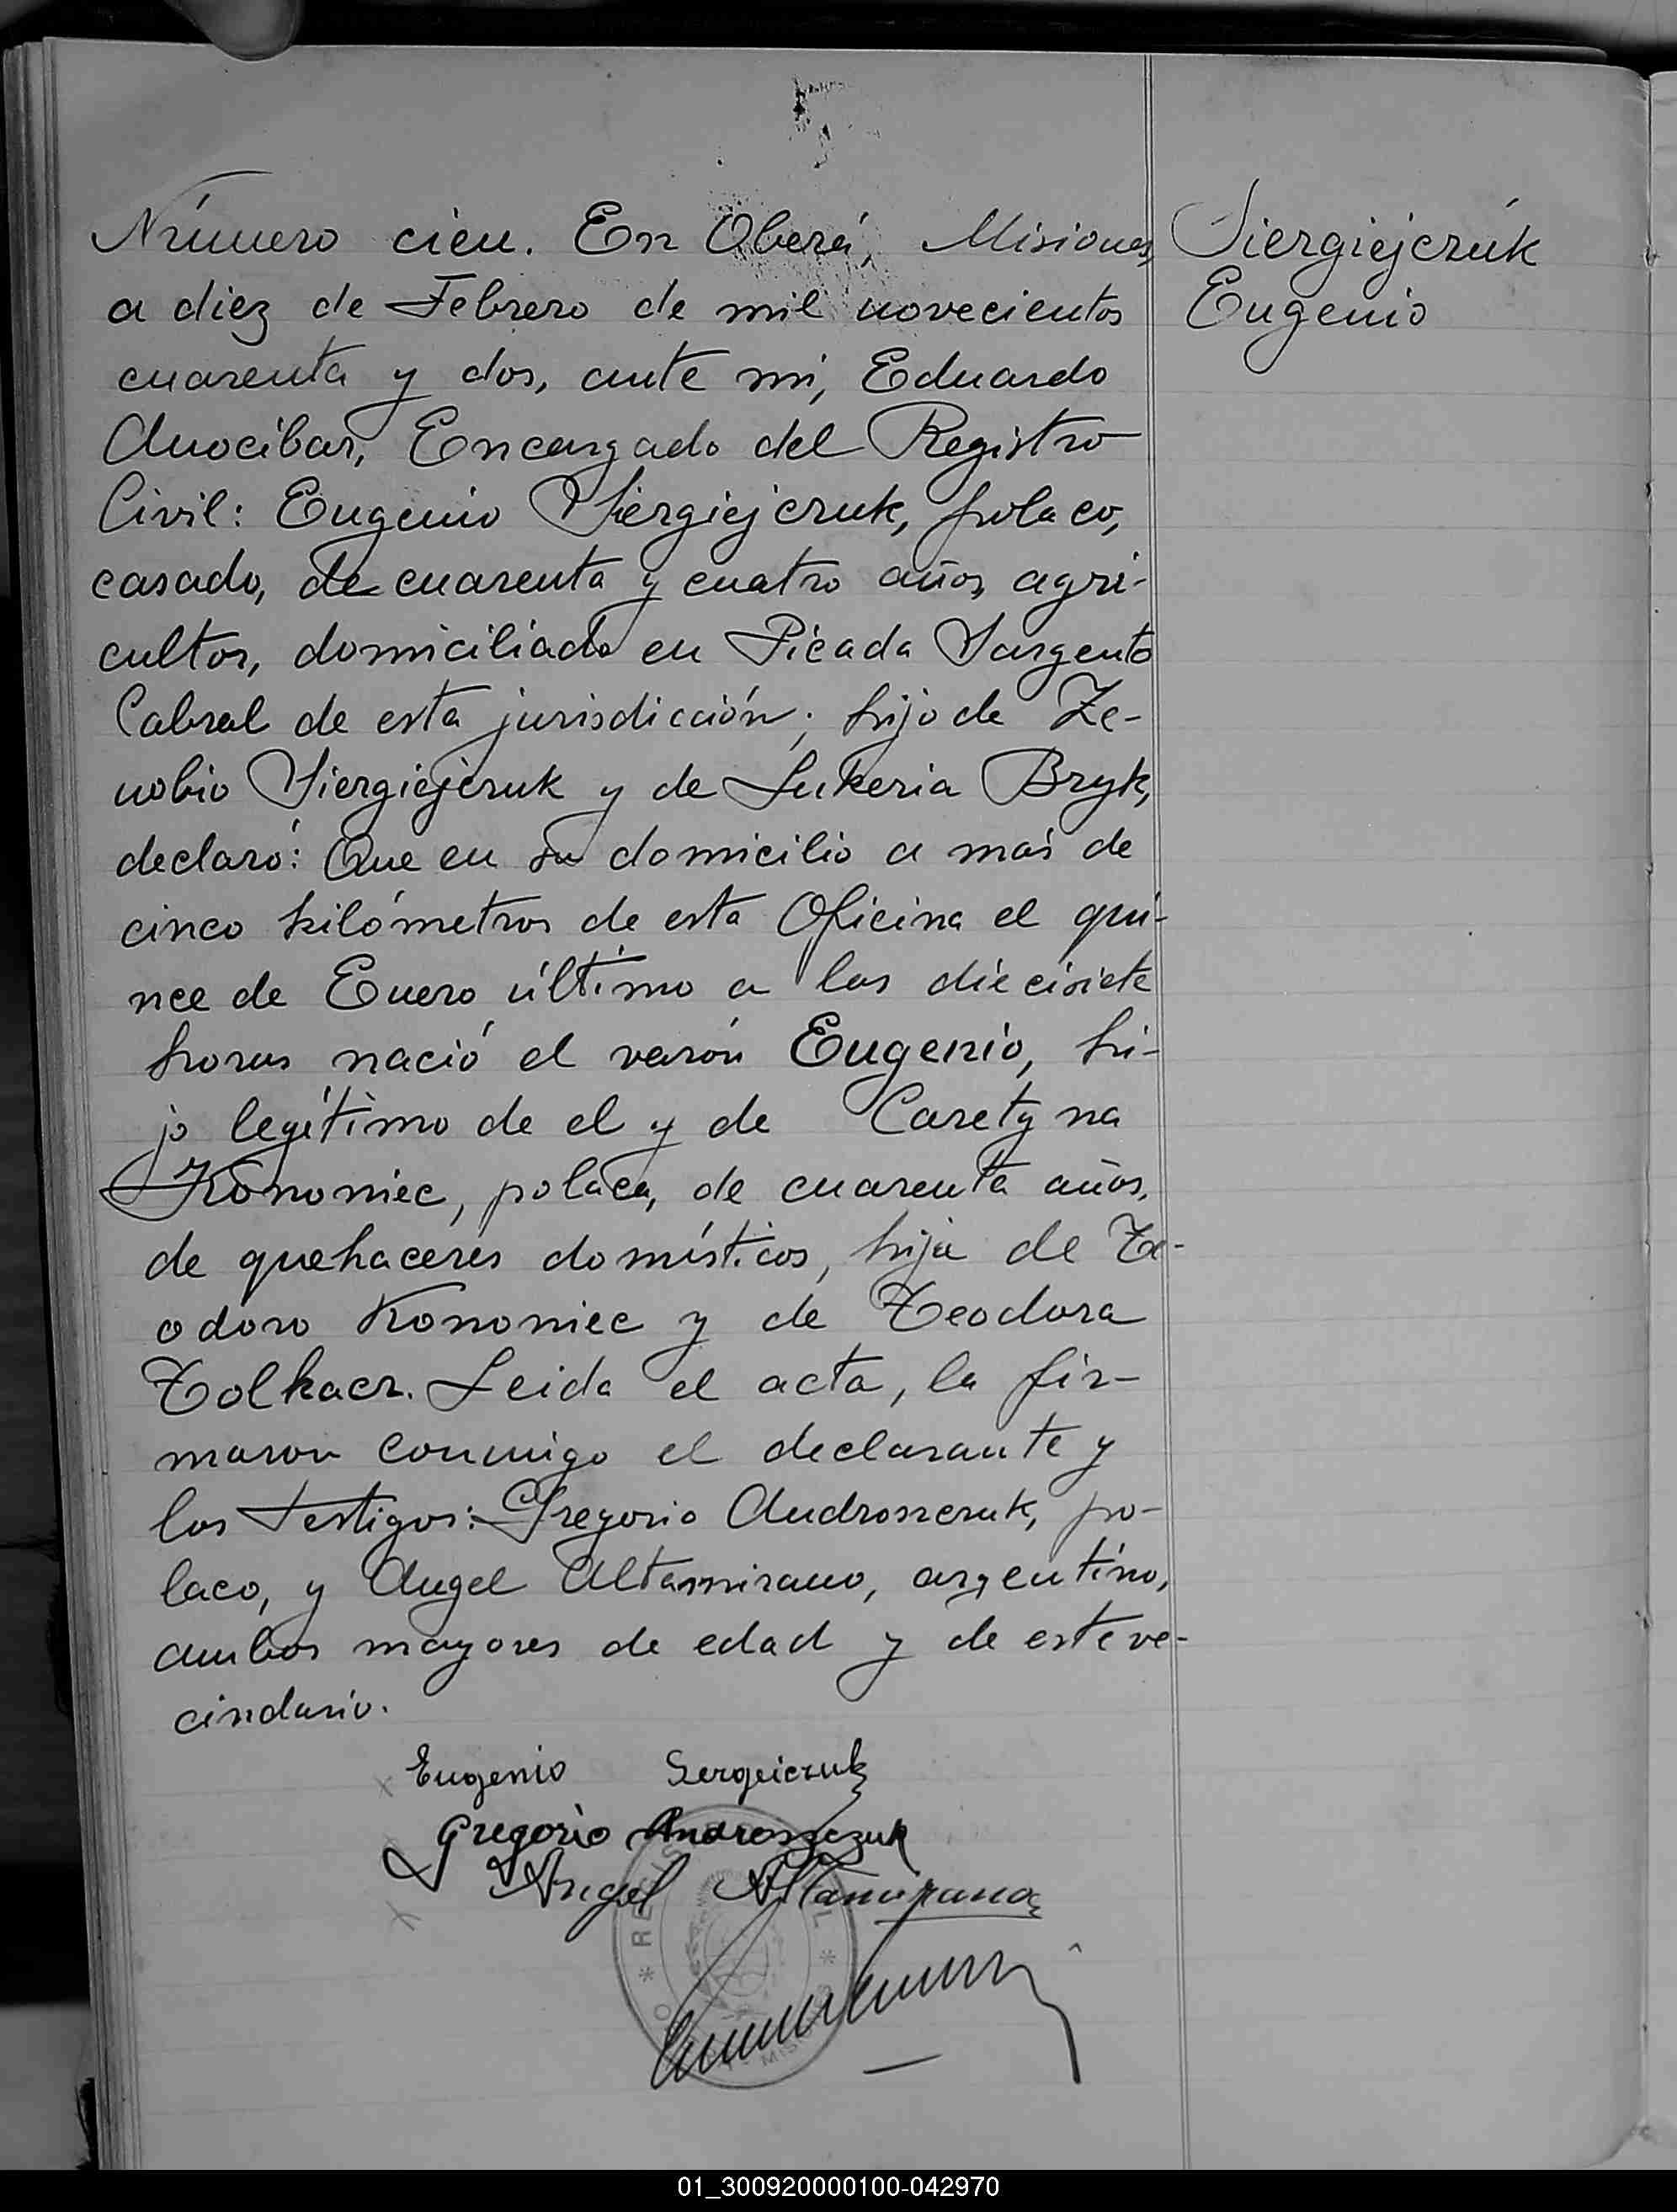 Número cien. En Oberá, Misiones,
a diez de Febrero de mil novecientos
cuarenta y dos, ante mi, Eduardo
Anocibar, Encargado del Registro
Civil: Eugenio Siergiejczuk, polaco,
casado, de cuarenta y cuatro años, agri-
cultor, domiciliado en Picada Sargento
Cabral de esta jurisdicción; hijo de Ze-
nobio Siergiejczuk y de Lukeria Bryk,
declaró: Que en su domicilio a más de
cinco kilómetros de esta Oficina el quin-
nce de Enero último a las diecisiete
horas nació el varón Eugenio, hi-
jo legítimo de el y de Caretyna
Kononiec, polaca, de cuarenta años,
de quehaceres domésticos, hija de Te-
odoro Kononiec y de Teodora
Tolkacz. Leida el acta, la fir-
maron conmigo el declarante y
los testigos: Gregorio Androszczuk, po-
laco, y Angel Altamirano, argentino,
ambos mayores de edad y de este ve-
cindario.
Siergiejczuk
Eugenio
Eugenio Sergeiczuk
Gregorio Androszczuk
Angel Altamirano
01_300920000100-042970